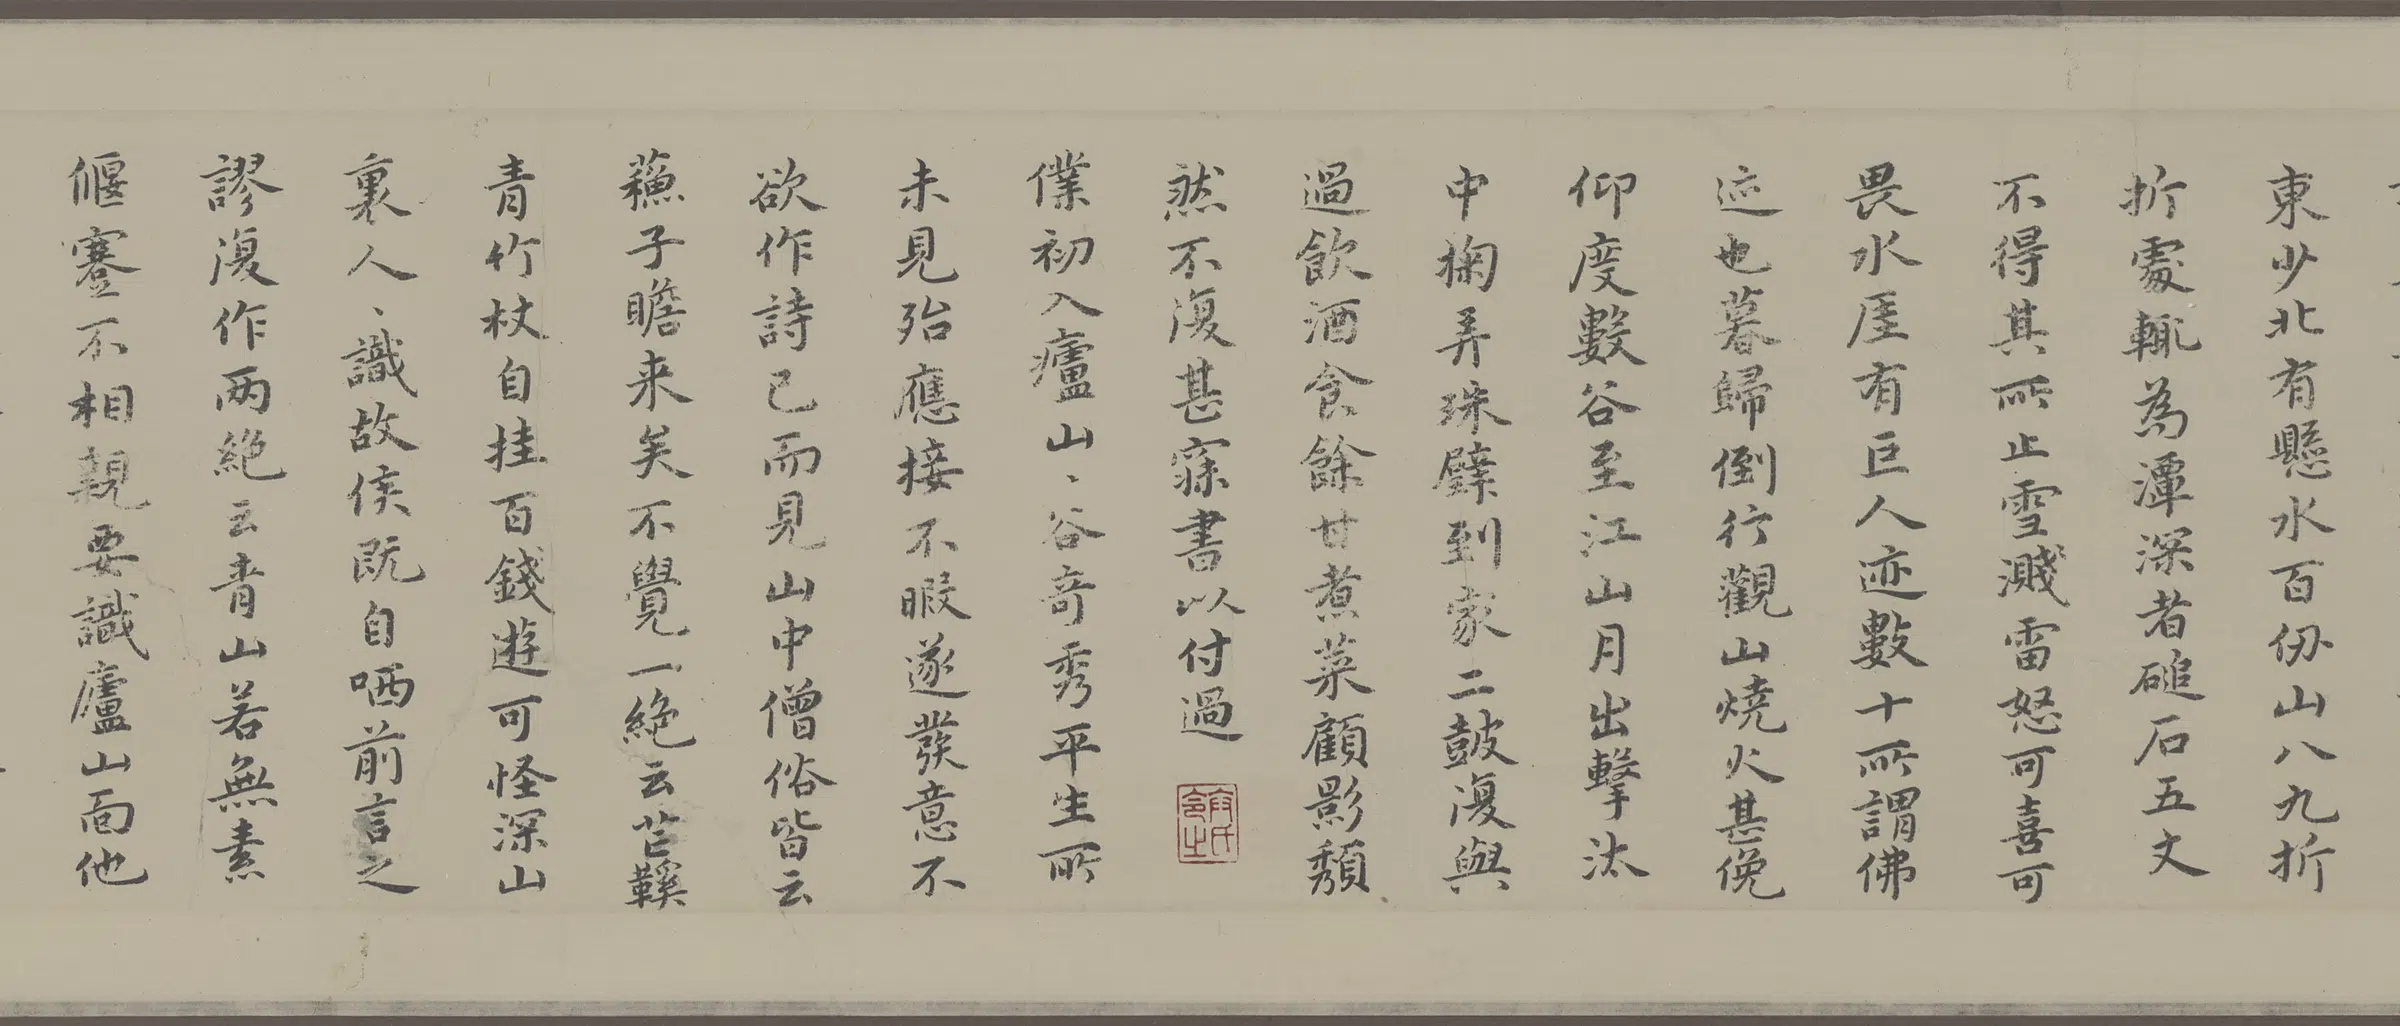 東少北有懸水百仞山八九折
折處輒為潭深者磓石五丈
不得其所止雪濺雷怒可喜可
畏水厓有巨人迹數十所謂佛
迹也暮歸倒行觀山燒火甚俛
仰度數谷至江山月出擊汰
中掬弄珠璧到家二鼓復與
過飲酒食餘甘煮菜顧影頹
然不復甚寐書以付過
僕初入廬山、谷奇秀平生所
未見殆應接不暇遂發意不
欲作詩已而見山中僧俗皆云
蘓子瞻来矣不覺一絕云芒鞵
青竹杖自挂百錢遊可怪深山
裏人、識故侯既自哂前言之
謬復作兩絕云青山若無素
偃蹇不相親要識廬山面他